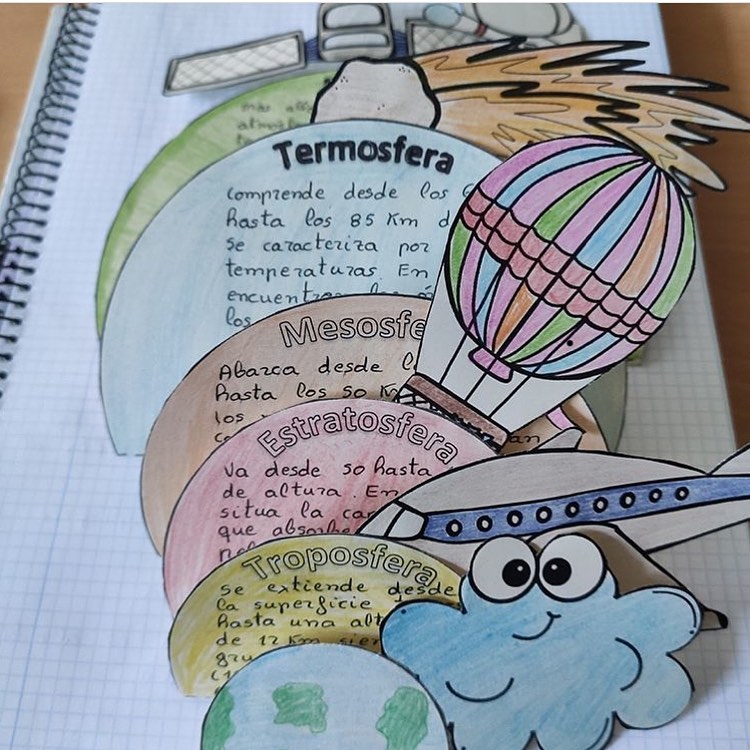 más
Termosfera
comprende desde los
hasta los 85 Km
se caracteriza por
temperaturas. En
encuentran
los
Mesosfe
Abarca desde
hasta los 50 Km
los
Estratosfera
Va desde 50 hasta
de altura. En
situa la
que absorbe
Troposfera
se extiende desde
la superficie
hasta una alt
de 12 Km
gru